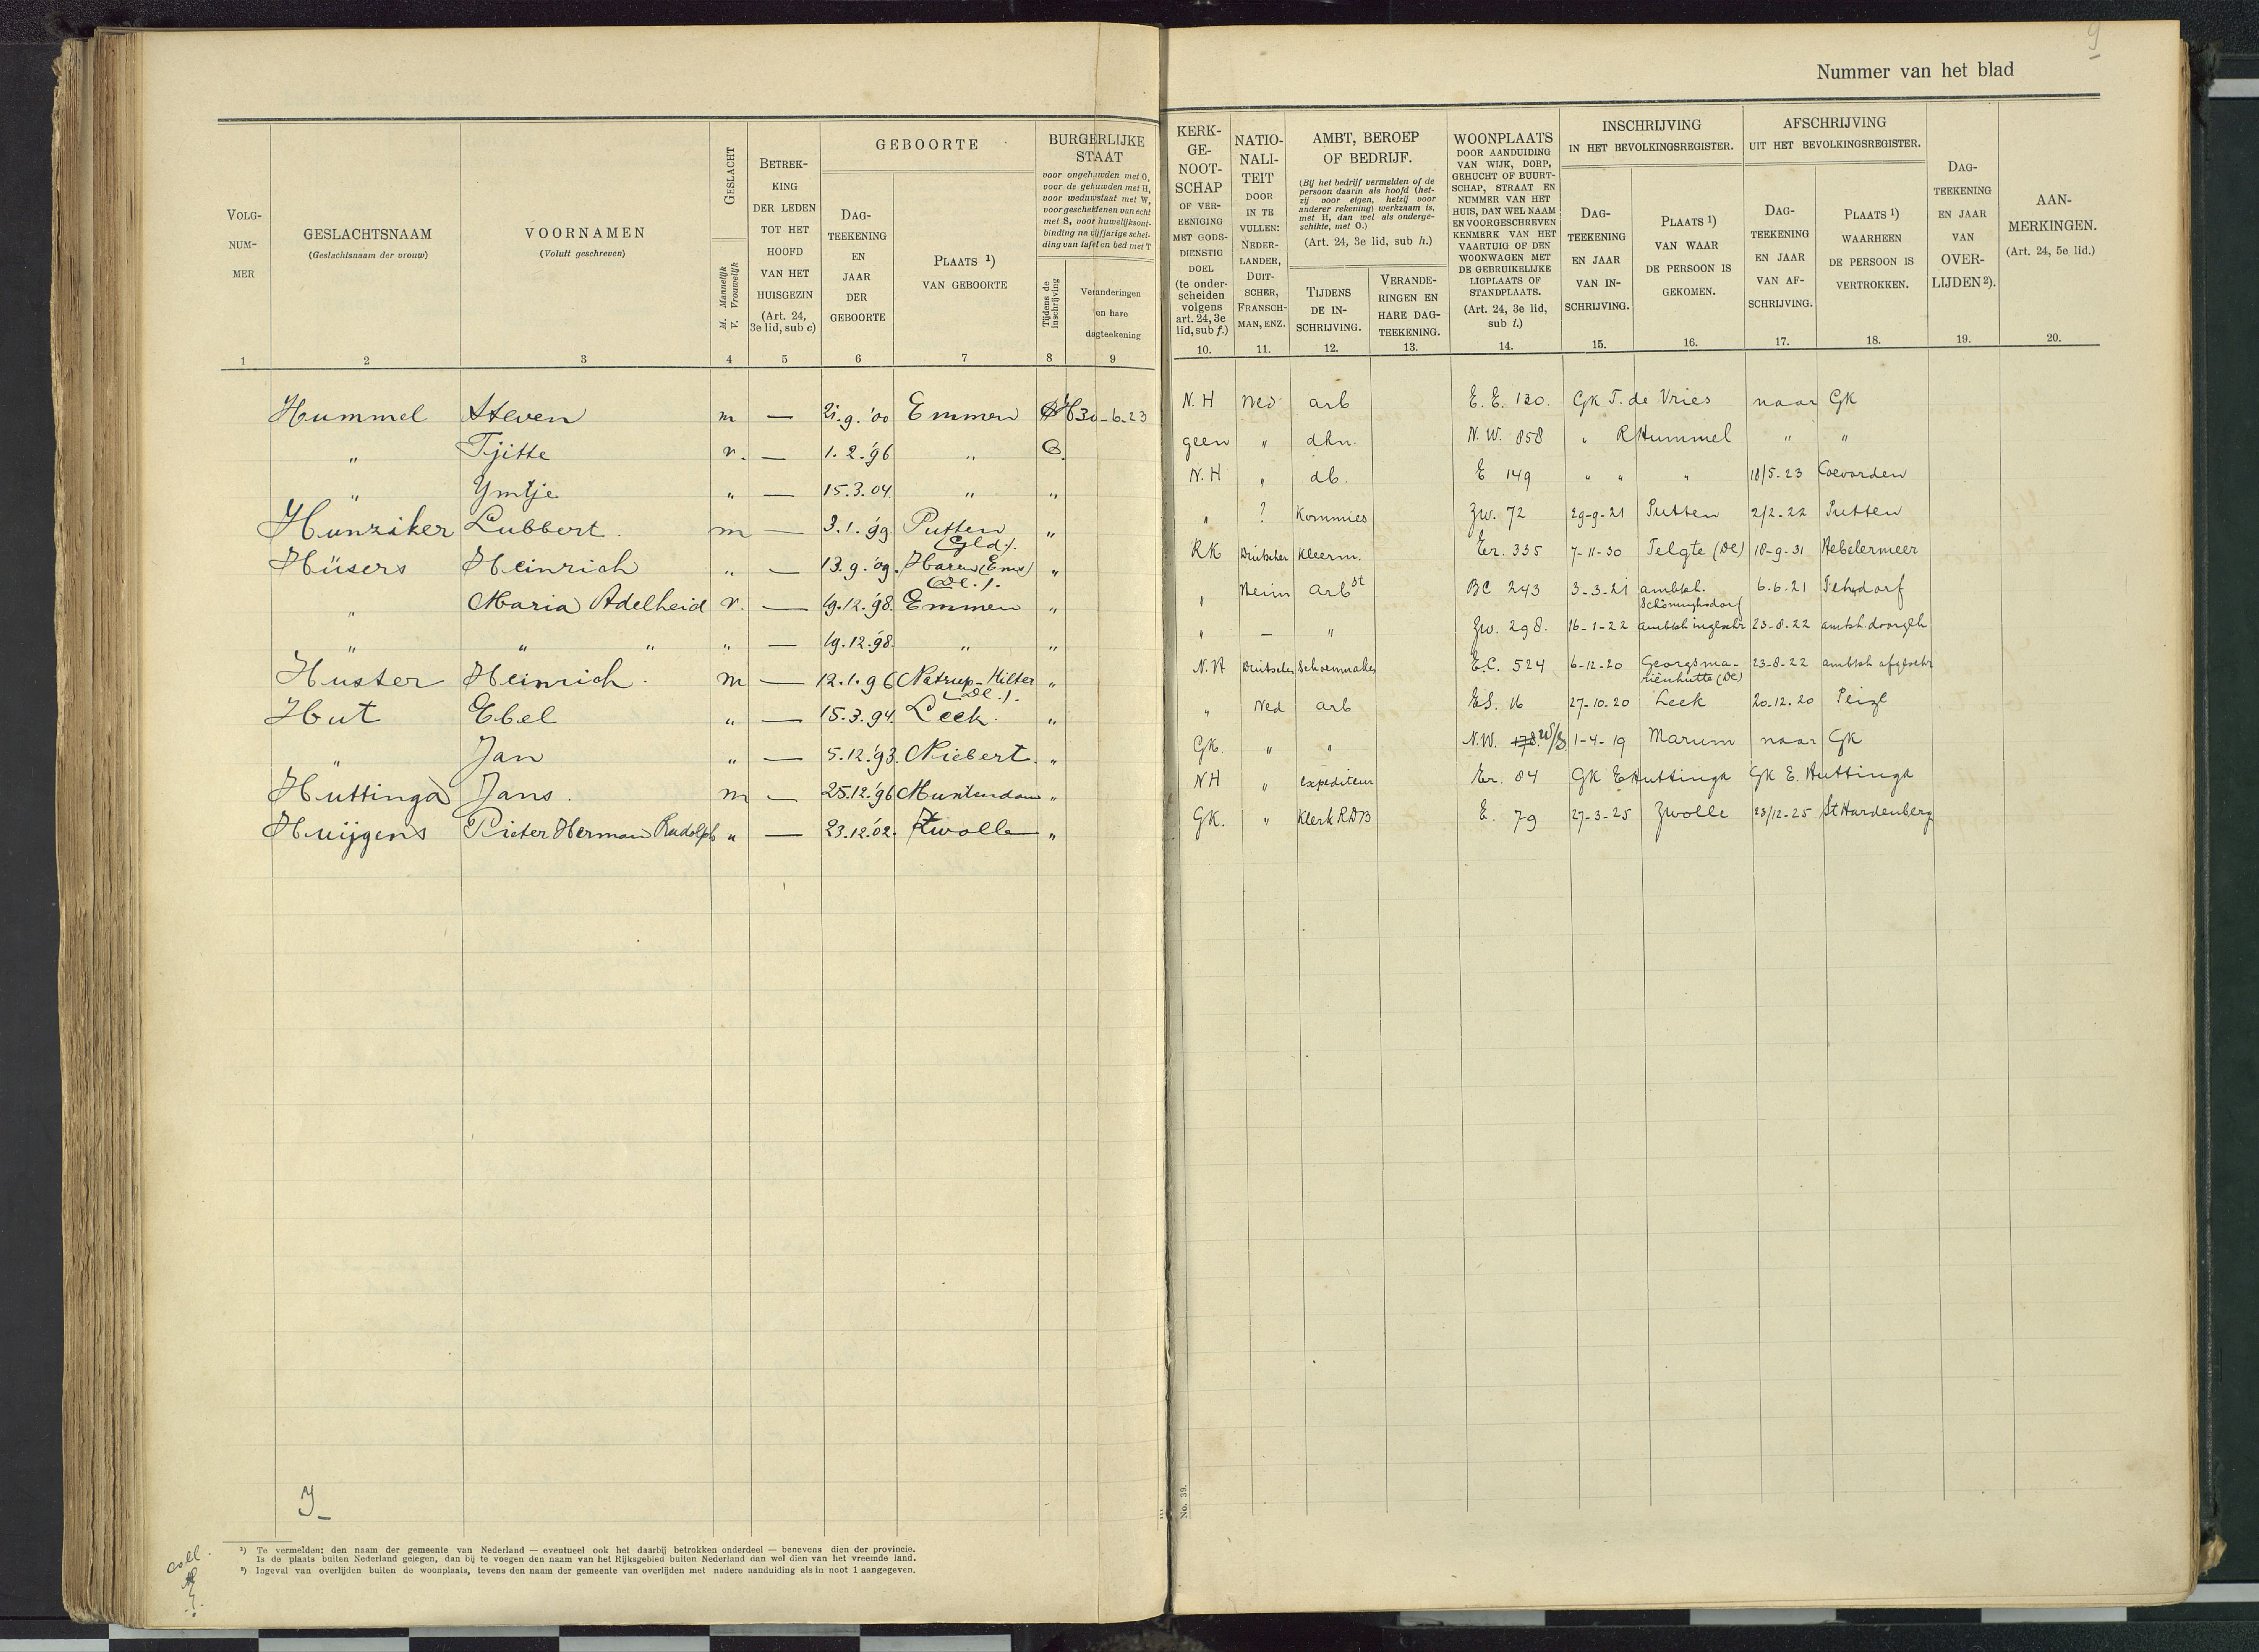 9
Nummer van het blad
VOLG-NUM-MER
GESLACHTSNAAM
(Geslachtsnaam der vrouw)
VOORNAMEN
(Voluit geschreven)
GESLACHT
M. Mannelijk
V. Vrouwelijk
BETREK-KING DER LEDEN TOT HET HOOFD VAN HET HUISGEZIN
(Art. 24, 3e lid, sub c)
GEBOORTE
DAG-TEEKENING EN JAAR DER GEBOORTE
PLAATS ¹) VAN GEBOORTE
BURGERLIJKE STAAT
voor ongehuwden met O,
voor de gehuwden met H,
voor weduwstaat met W,
voor gescheidenen van echt
met S, voor huwelijksont-
binding na vijfjarige schei-
ding van tafel en bed met T
Tijdens de inschrijving
Veranderingen en hare dagteekening
KERK-GE-NOOT-SCHAP
OF VER-EENIGING MET GODS-DIENSTIG DOEL
(te onder-scheiden volgens art. 24, 3e lid, sub f.)
NATIO-NALI-TEIT
DOOR IN TE VULLEN: NEDER-LANDER, DUIT-SCHER, FRANSCH-MAN, ENZ.
AMBT, BEROEP OF BEDRIJF.
(Bij het bedrijf vermelden of de
persoon daarin als hoofd (het-
zij voor eigen, hetzij voor
anderer rekening) werkzaam is,
met H, dan wel als onderge-
schikte, met O.)
(Art. 24, 3e lid, sub h.)
TIJDENS DE IN-SCHRIJVING.
VERANDE-RINGEN EN HARE DAG-TEEKENING.
WOONPLAATS
DOOR AANDUIDING
VAN WIJK, DORP,
GEHUCHT OF BUURT-
SCHAP, STRAAT EN
NUMMER VAN HET
HUIS, DAN WEL NAAM
EN VOORGESCHREVEN
KENMERK VAN HET
VAARTUIG OF DEN
WOONWAGEN MET
DE GEBRUIKELIJKE
LIGPLAATS OF
STANDPLAATS.
(Art. 24, 3e lid, sub i.)
INSCHRIJVING
IN HET BEVOLKINGSREGISTER.
DAG-TEEKENING EN JAAR VAN IN-SCHRIJVING.
PLAATS ¹) VAN WAAR DE PERSOON IS GEKOMEN.
AFSCHRIJVING
UIT HET BEVOLKINGSREGISTER.
DAG-TEEKENING EN JAAR VAN AF-SCHRIJVING.
PLAATS ¹) WAARHEEN DE PERSOON IS VERTROKKEN.
DAG-TEEKENING EN JAAR VAN OVER-LIJDEN ²).
AAN-MERKINGEN.
(Art. 24, 5e lid.)
1 2 3 4 5 6 7 8 9 10. 11. 12. 13. 14. 15. 16. 17. 18. 19. 20.
Hummel Steven m — 21.9.'00 Emmen H 30-6-23 N.H Ned arb E.E. 130. Gk T. de Vries naar Gk
" Tjitte v. — 1.2.'96 " O. geen " dhn. N.W. 858 " R Hummel " "
" Ymtje " — 15.3.04. " " N.H " db. E 149 " " " 18/5-23 Coevorden
Hunziker Lubbert. m — 3.1.'99 Putten (Gld.). " " ? Kommies Zw. 72 29-9-21 Putten 2/2-22 Putten
Hüsers Heinrich " — 13.9.'09. Haren (Ems) (Dl.). " RK Duitscher Kleerm. Er. 335 7-11-30 Telgte (Dl) 18-9-31 Hebelermeer
" Maria Adelheid v. — 19.12.'98. Emmen " " Neim arb st BC 243 3-3-21 ambtsh. Schöninghsdorf 6.6.21
" " " " — 19.12.'98. " " " — " Zw. 298. 16-1-22 ambtsh ingeschr 23-8-22 ambtsh doorgeh
Huster Heinrich. m — 12.1.96 Natrup-Hilter (Dl.). " N.H Duitscher Schoenmaker E.C. 524 6-12-20 Georgsma-riënhutte (Dl) 23-8-22 ambtsh afgeschr
Hut Ebel " — 15.3.94. Leek. " " Ned arb ES. 16 27-10-20 Leek 20-12.20 Peize
" Jan " — 5.12.'93. Niebert. " Gk. " " N.W. 1-4-19 Marum naar Gk
Huttinga Jans. m — 25.12.'96 Muntendam " NH " expediteur Er. 84 Gk E Huttinga Gk E. Huttinga
Huijgens Pieter Herman Rudolph " — 23.12.'02. Zwolle " Gk. " Klerk RDB E. 79 27-3-25 Zwolle 23/12-25 St Hardenberg
No. 39.
coll.
¹) Te vermelden: den naam der gemeente van Nederland — eventueel ook het daarbij betrokken onderdeel — benevens dien der provincie.
Is de plaats buiten Nederland gelegen, dan bij te voegen den naam van het Rijksgebied buiten Nederland dan wel dien van het vreemde land.
²) Ingeval van overlijden buiten de woonplaats, tevens den naam der gemeente van overlijden met nadere aanduiding als in noot 1 aangegeven.